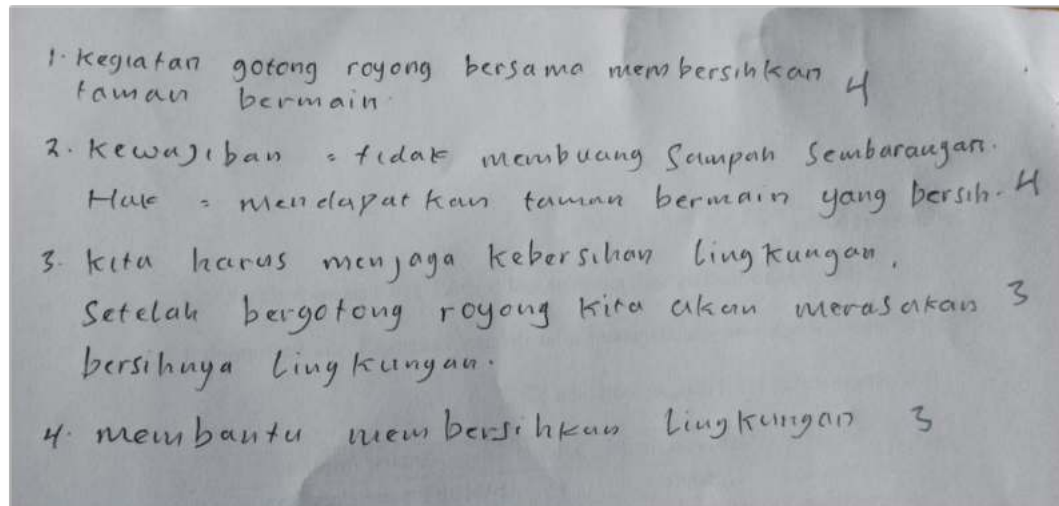 1. Kegiatan gotong royong bersama membersihkan 4
taman bermain.
2. Kewajiban = tidak membuang Sampah Sembarangan.
Hak = mendapatkan taman bermain yang bersih. 4
3. Kita harus menjaga kebersihan lingkungan.
Setelah bergotong royong kita akan merasakan 3
bersihnya lingkungan.
4. membantu membersihkan lingkungan 3